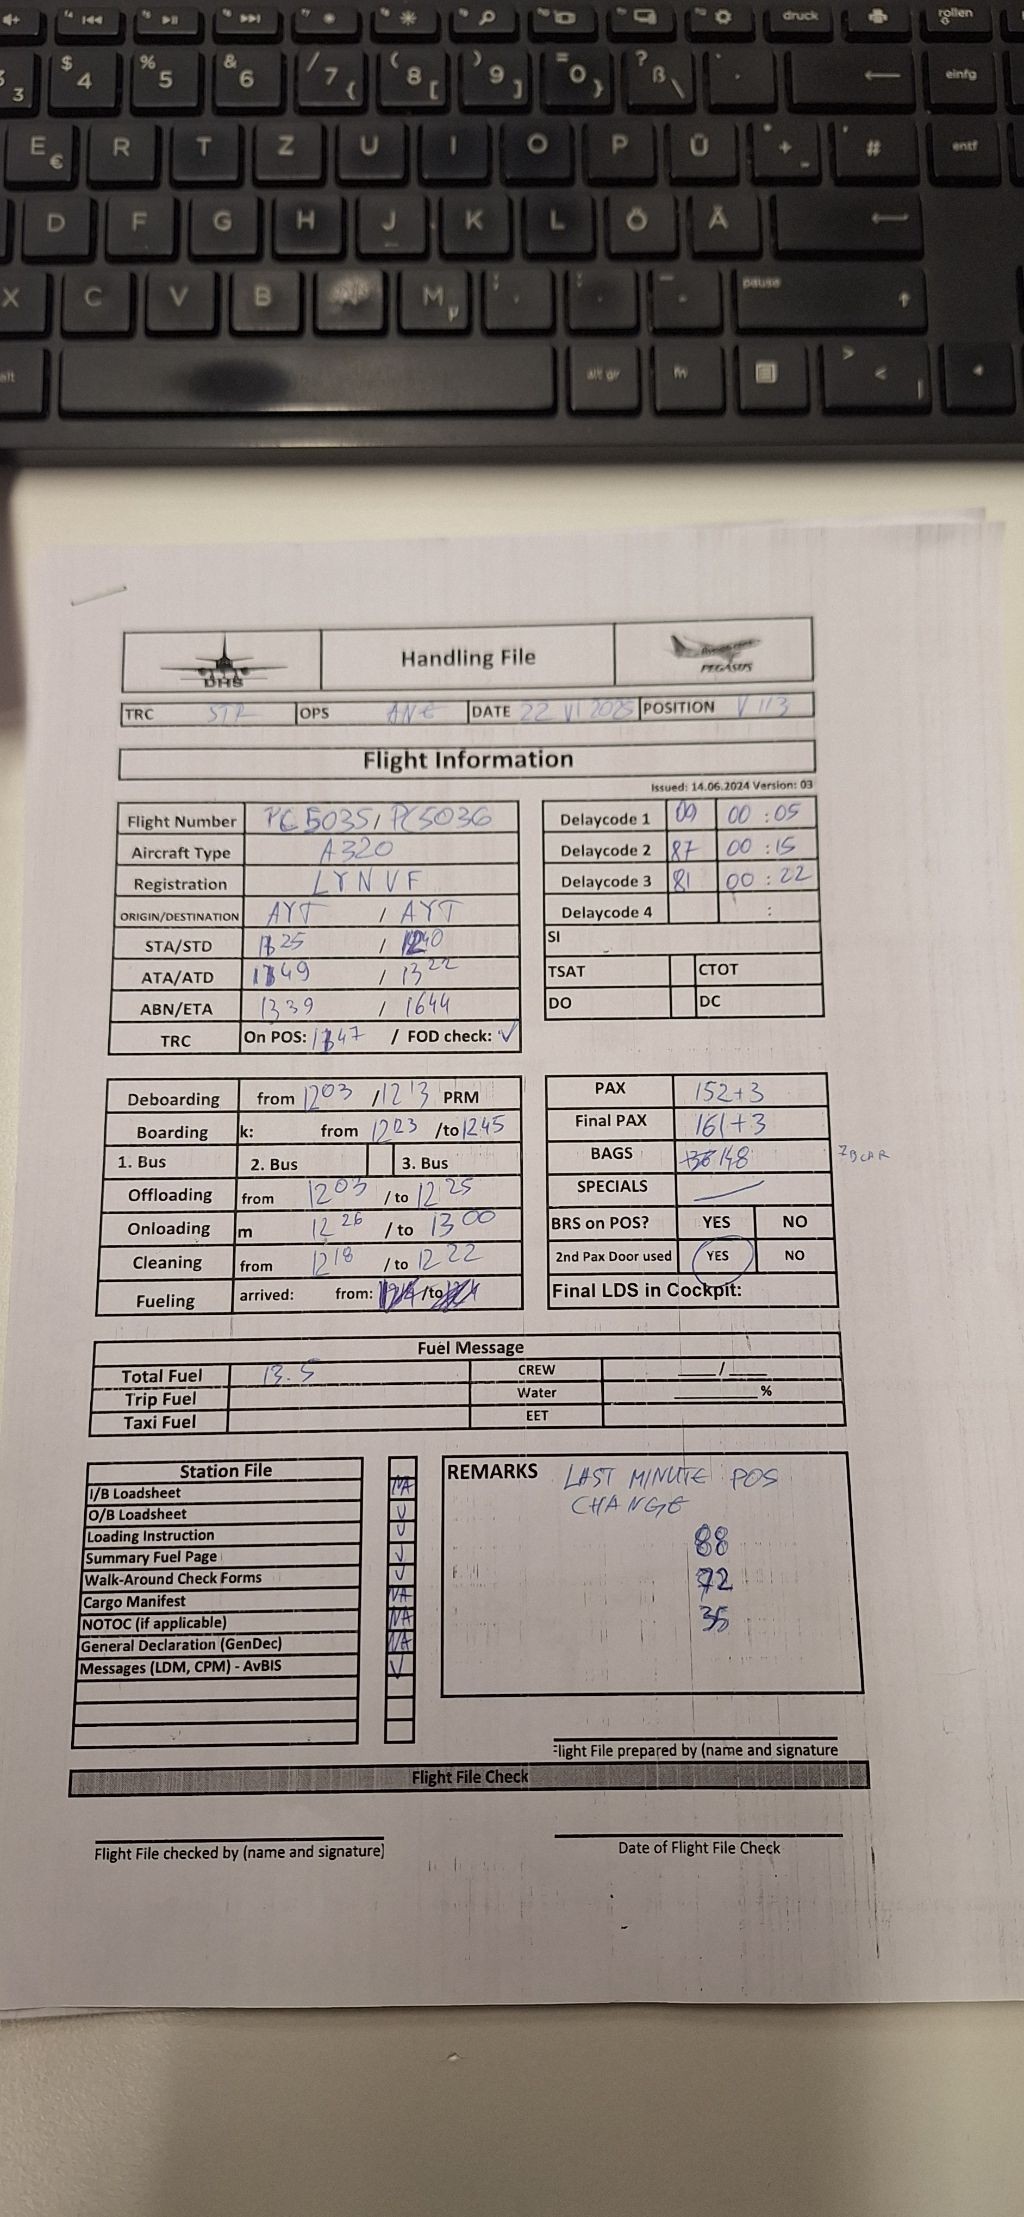 druck
rollen
$ 4 % 5 & 6 / 7 { ( 8 [ ) 9 ] = 0 } ? ß \
einfg
E € R T Z U I O P Ü + #
entf
D F G H J K L Ö Ä
X C V B M µ
pause
alt gr fn
DHS
Handling File
PEGASUS
TRC STR OPS ANE DATE 22 VI 2025 POSITION V 113
Flight Information
Issued: 14.06.2024 Version: 03
Flight Number PC 5035 / PC5036
Delaycode 1 09 00 : 05
Aircraft Type A320
Delaycode 2 87 00 : 15
Registration LYNVF
Delaycode 3 81 00 : 22
ORIGIN/DESTINATION AYT / AYT
Delaycode 4 :
STA/STD 25 / 1240
SI
ATA/ATD 49 / 1322
TSAT CTOT
ABN/ETA 1339 / 1644
DO DC
TRC On POS: 47 / FOD check: ✓
Deboarding from 1203 / 1213 PRM
PAX 152+3
Boarding k: from 1223 /to 1245
Final PAX 161+3
1. Bus 2. Bus 3. Bus
BAGS 148
Offloading from 1203 / to 1225
SPECIALS
Onloading m 1226 / to 1300
BRS on POS? YES NO
Cleaning from 1218 / to 1222
2nd Pax Door used YES NO
Fueling arrived: from: /to
Final LDS in Cockpit:
Fuel Message
Total Fuel 13.5 CREW /
Trip Fuel Water %
Taxi Fuel EET
Station File
I/B Loadsheet NA
O/B Loadsheet ✓
Loading Instruction ✓
Summary Fuel Page ✓
Walk-Around Check Forms ✓
Cargo Manifest NA
NOTOC (if applicable) NA
General Declaration (GenDec) NA
Messages (LDM, CPM) - AvBIS ✓
REMARKS LAST MINUTE POS
CHANGE
88
72
35
Flight File prepared by (name and signature
Flight File Check
Flight File checked by (name and signature)
Date of Flight File Check